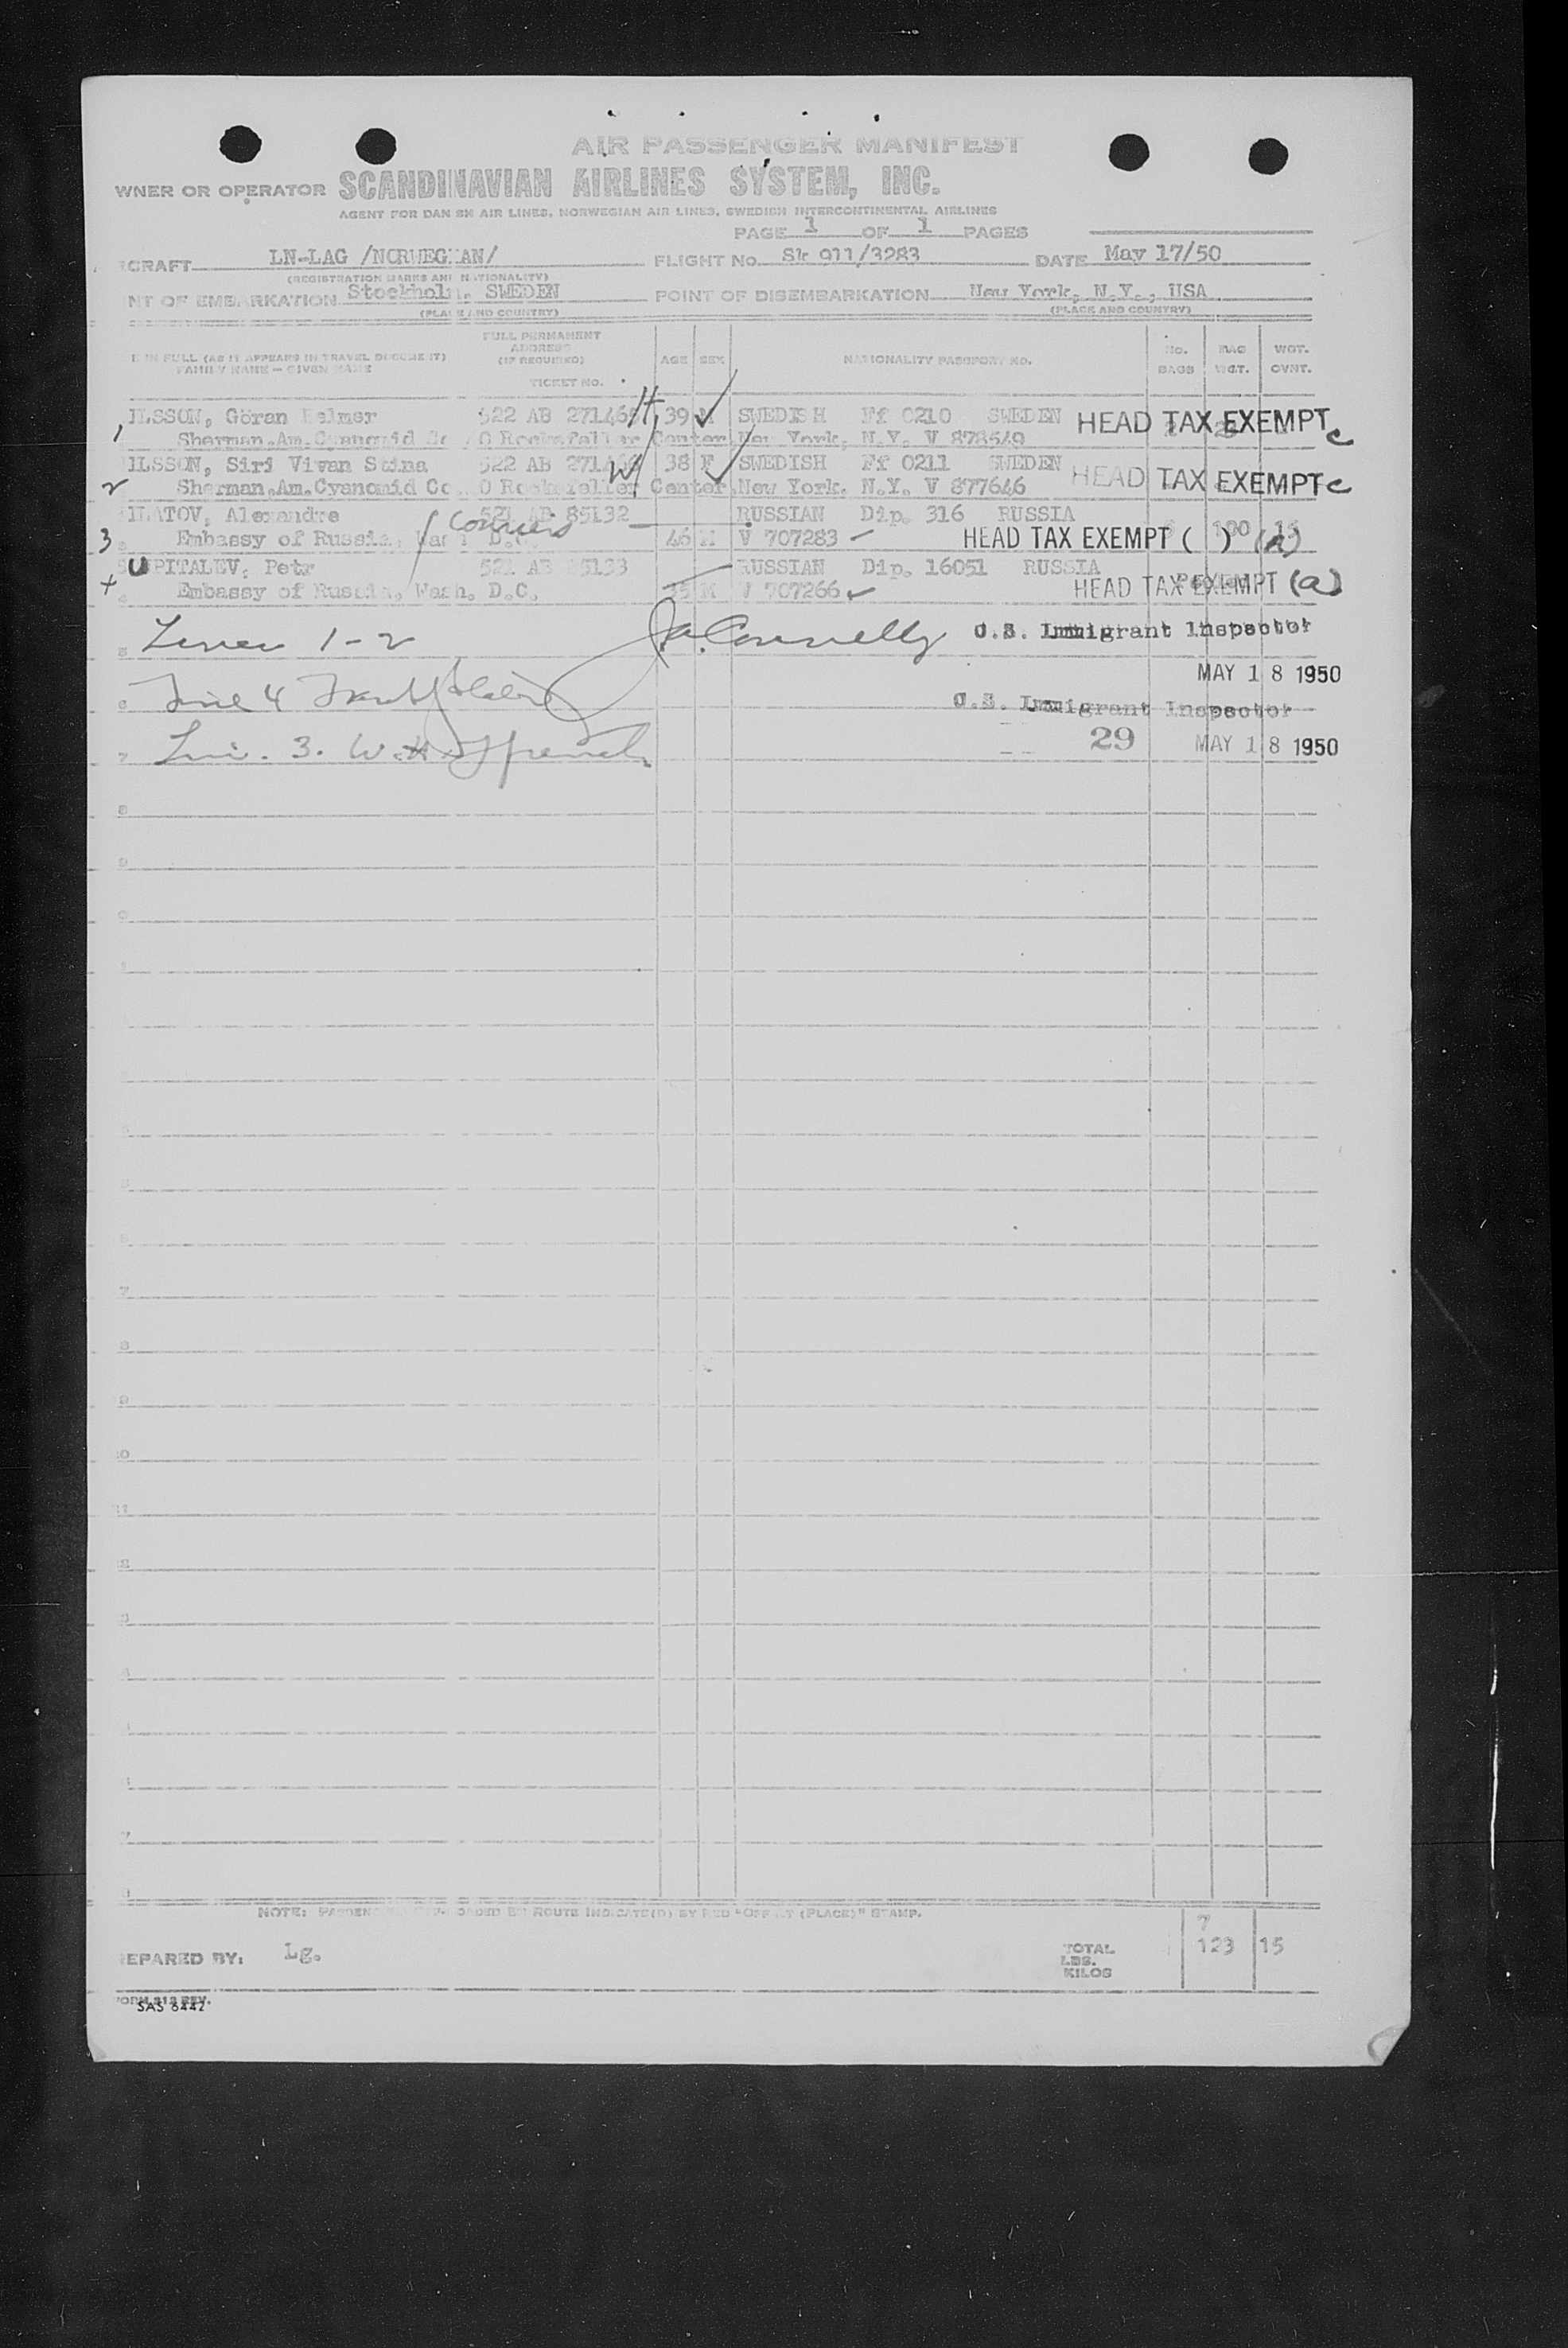 AIR PASSENGER MANIFEST
WNER OR OPERATOR SCANDINAVIAN AIRLINES SYSTEM, INC.
AGENT FOR DANISH AIR LINES, NORWEGIAN AIR LINES, SWEDISH INTERCONTINENTAL AIRLINES
PAGE 1 OF 1 PAGES
CRAFT LN-LAG /NORWEGIAN/ FLIGHT NO. SK 911/3283 DATE May 17/50
(REGISTRATION MARKS AND NATIONALITY)
NT OF EMBARKATION Stockholm, SWEDEN POINT OF DISEMBARKATION New York, N.Y., USA
(PLACE AND COUNTRY) (PLACE AND COUNTRY)
E IN FULL (AS IT APPEARS IN TRAVEL DOCUMENT) FAMILY NAME — GIVEN NAME FULL PERMANENT ADDRESS (IF REQUIRED) TICKET NO. AGE SEX NATIONALITY PASSPORT NO. No. BAGS BAG WGT. WGT. OVNT.
ILSSON, Göran Helmer 522 AB 271468 H 39 M SWEDISH Ff 0210 SWEDEN HEAD TAX EXEMPT c
1 Sherman.Am.Cyanomid Co 0 Rockefeller Center New York, N.Y. V 878549
ILSSON, Siri Vivan Stina 522 AB W 38 F SWEDISH Ff 0211 SWEDEN HEAD TAX EXEMPT c
2 Sherman.Am.Cyanomid Co. 0 Rockefeller Center New York, N.Y. V 877646
ILATOV, Alexandre 521 AB 85132 RUSSIAN Dip. 316 RUSSIA
3 Embassy of Russia, Wash. D.C. Couriers 46 M V 707283 HEAD TAX EXEMPT ( ) (a) 100 15
UPITALEV, Petr 521 AB 85133 RUSSIAN Dip. 16051 RUSSIA
4 Embassy of Russia, Wash. D.C. 35 M V 707266 HEAD TAX EXEMPT (a)
1-2 J.A. Connelly U.S. Immigrant Inspector
MAY 18 1950
Line 4
U.S. Immigrant Inspector
Lin. 3. W. H. French 29 MAY 18 1950
NOTE: ROUTE INDICATE(D) BY RED "OFF AT (PLACE)" STAMP.
7
EPARED BY: Lg. TOTAL LBS. KILOS 123 15
FORM 313 REV.
SAS 6442